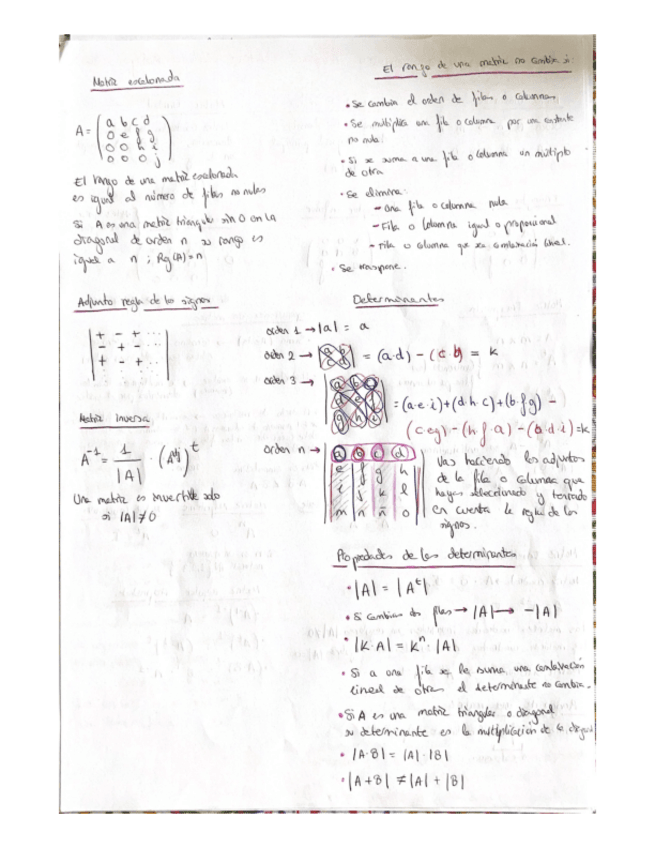 Matriz escalonada
A = ( a b c d
0 e f g
0 0 h i
0 0 0 j )
El rango de una matriz escalonada
es igual al número de filas no nulas
Si A es una matriz triangular sin 0 en la
diagonal de orden n su rango es
igual a n ; Rg(A)=n
El rango de una matriz no cambia si:
• Se cambia el orden de filas o columnas
• Se multiplica una fila o columna por una constante
no nula.
• Si se suma a una fila o columna un múltiplo
de otra
• Se elimina:
- Una fila o columna nula
- Fila o columna igual o proporcional
- Fila o columna que sea combinación lineal.
• Se traspone.
Adjunto regla de los signos
| + - + ...
- + - ...
+ - + ... |
Matriz inversa
A⁻¹ = 1/|A| · (Aᵈʲ)ᵗ
Una matriz es invertible solo
si |A| ≠ 0
Determinantes
orden 1 → |a| = a
orden 2 → |a b
c d| = (a·d) - (c·b) = k
orden 3 → |a b c
d e f
g h i| = (a·e·i)+(d·h·c)+(b·f·g) -
(c·e·g)-(h·f·a)-(b·d·i)=k
orden n → |a b c d
e f g h
i j k l
m n ñ o|
Vas haciendo los adjuntos
de la fila o columna que
hayas seleccionado y teniendo
en cuenta la regla de los
signos.
Propiedades de los determinantes
• |A| = |Aᵗ|
• Si cambias dos filas → |A| → -|A|
• |K·A| = Kⁿ·|A|
• Si a una fila se le suma una combinación
lineal de otras el determinante no cambia.
• Si A es una matriz triangular o diagonal
su determinante es la multiplicación de la diagonal
• |A·B| = |A|·|B|
• |A+B| ≠ |A| + |B|